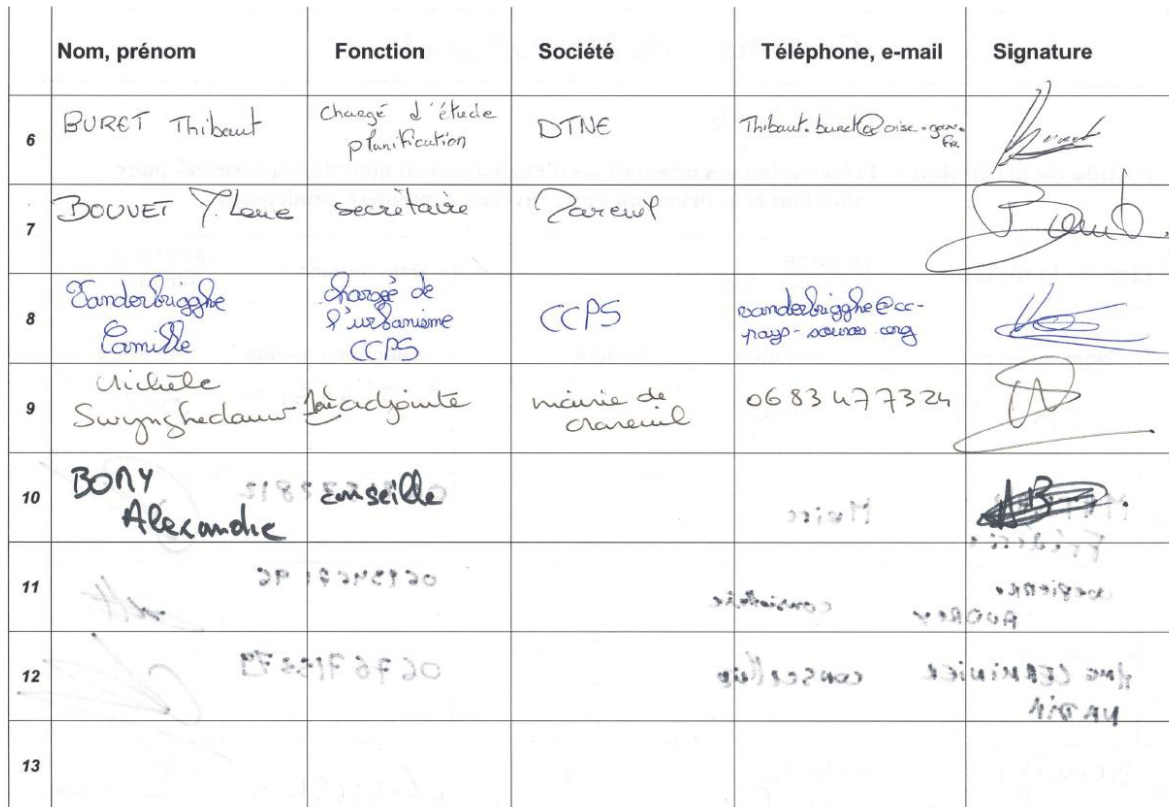 Nom, prénom Fonction Société Téléphone, e-mail Signature
6 BURET Thibaut Chargé d'étude planification DTNE Thibaut.buret@oise.gouv.fr
7 BOUVET secrétaire Mareuil
8 Vanderbrigghe Camille chargé de l'urbanisme CCPS CCPS vanderbrigghe@cc-pays-sources.org
9 Michèle Swynghedauw 1ère adjointe mairie de Mareuil 0683477324
10 BONY Alexandre conseille AB
11
12
13